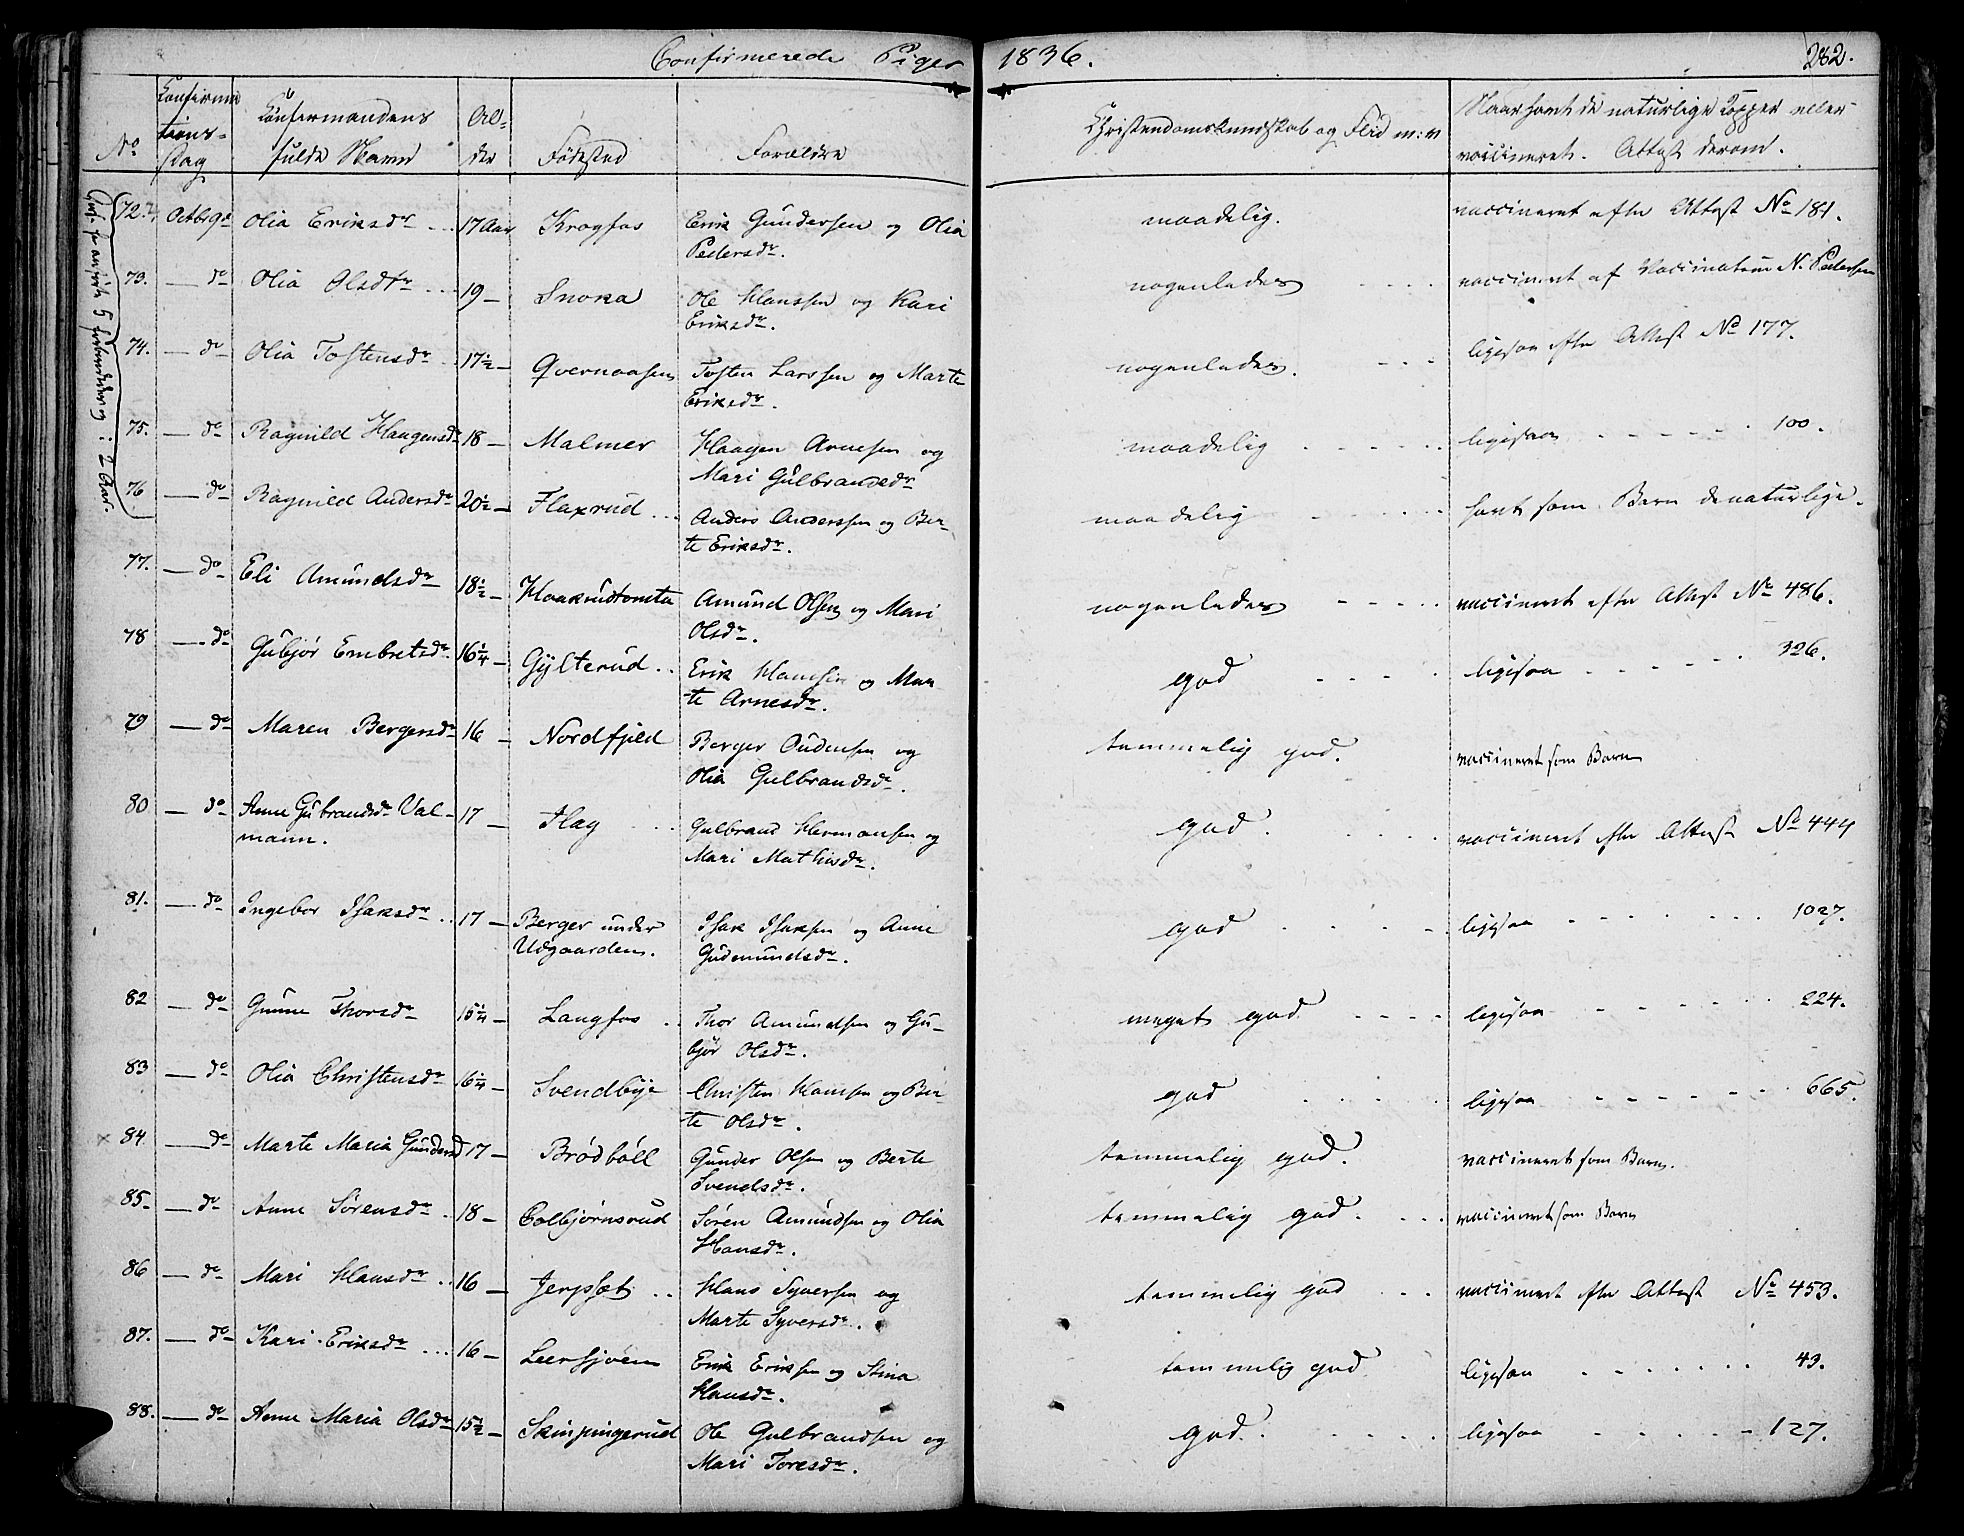 Confirmerede Piger 1836. 282.
No Confirmations-Dag Confirmandens fulde Navn Alder Fødested Forældre Christendomskundskab og Flid m: v Naar havt de naturlige Kopper eller vaccineret. Attest derom.
72. Octbr 9de Olia Eriksdr 17 Aar Krogfos Erik Gundersen og Olia maadelig. vaccineret efter Attest No 181.
Pedersdr.
73. — do Olia Olsdtr 19 — Snoka Ole Hanssen og Kari nogenledes vaccineret af Vaccinateur N. Pedersen
Eriksdr.
74. — do Olia Tostensdr 17½ — Qvernaasen Tosten Larssen og Marte nogenledes. ligesaa efter Attest No 177.
Eriksdr.
75. — do Ragnild Haagensdr 18 — Malmer Haagen Arnesen og maadelig ligesaa 100.
Mari Gulbrandsdr
76 — do Ragnild Andersdr 20½ — Flaxrud Anders Anderssen og Ber- maadelig havt som Barn de naturlige.
te Eriksdr.
77. — do Eli Amundsdr 18½ — Haakrudtomta Amund Olsen og Mari nogenledes vaccineret efter Attest No 486.
Olsdr.
78 — do Gubjør Embretsdr 16¼ — Gylterud Erik Hansen og Mar- god ligesaa 326.
te Arnesdr.
79 — do Maren Bergersdr 16 — Nordfjeld Berger Audensen og temmelig god. vaccineret som Barn
Olia Gulbrandsdr.
80 — do Anne Gubrandsdr Val- 17 — Flag Gulbrand Hermansen og god. vaccineret efter Attest No 444
mann. Mari Mathisdr.
81. — do Ingebor Isaksdr 17 — Berger under Isak Isaksen og Anne god ligesaa 1027.
Udgaarden. Gudmundsdr.
82 — do Gunne Thorsdr 15¼ — Langfos Thor Amundsen og Gu- meget god ligesaa 224.
bjør Olsdr.
83 — do Olia Christensdr 16¼ — Svendbye Christen Hansen og Ber- god ligesaa 665.
te Olsdr.
84. — do Marte Maria Gundersd 17 — Brødbøll Gunder Olsen og Berte temmelig god. vaccineret som Barn.
Svendsdr.
85. — do Anne Sørensdr 18 — Colbjørnsrud Søren Amundsen og Olia temmelig god. vaccineret som Barn
Hansdr.
86 — do Mari Hansdr 16 — Jerpset Hans Syversen og temmelig god vaccineret efter Attest No 453.
Marte Syversdr.
87. — do Kari Eriksdr 16 — Leersjøen Erik Eriksen og Stina temmelig god ligesaa 43.
Hansdr.
88. — do Anne Maria Olsdr 15½ — Skinpingerud Ole Gulbrandsen og god. ligesaa 127.
Mari Toresdr.